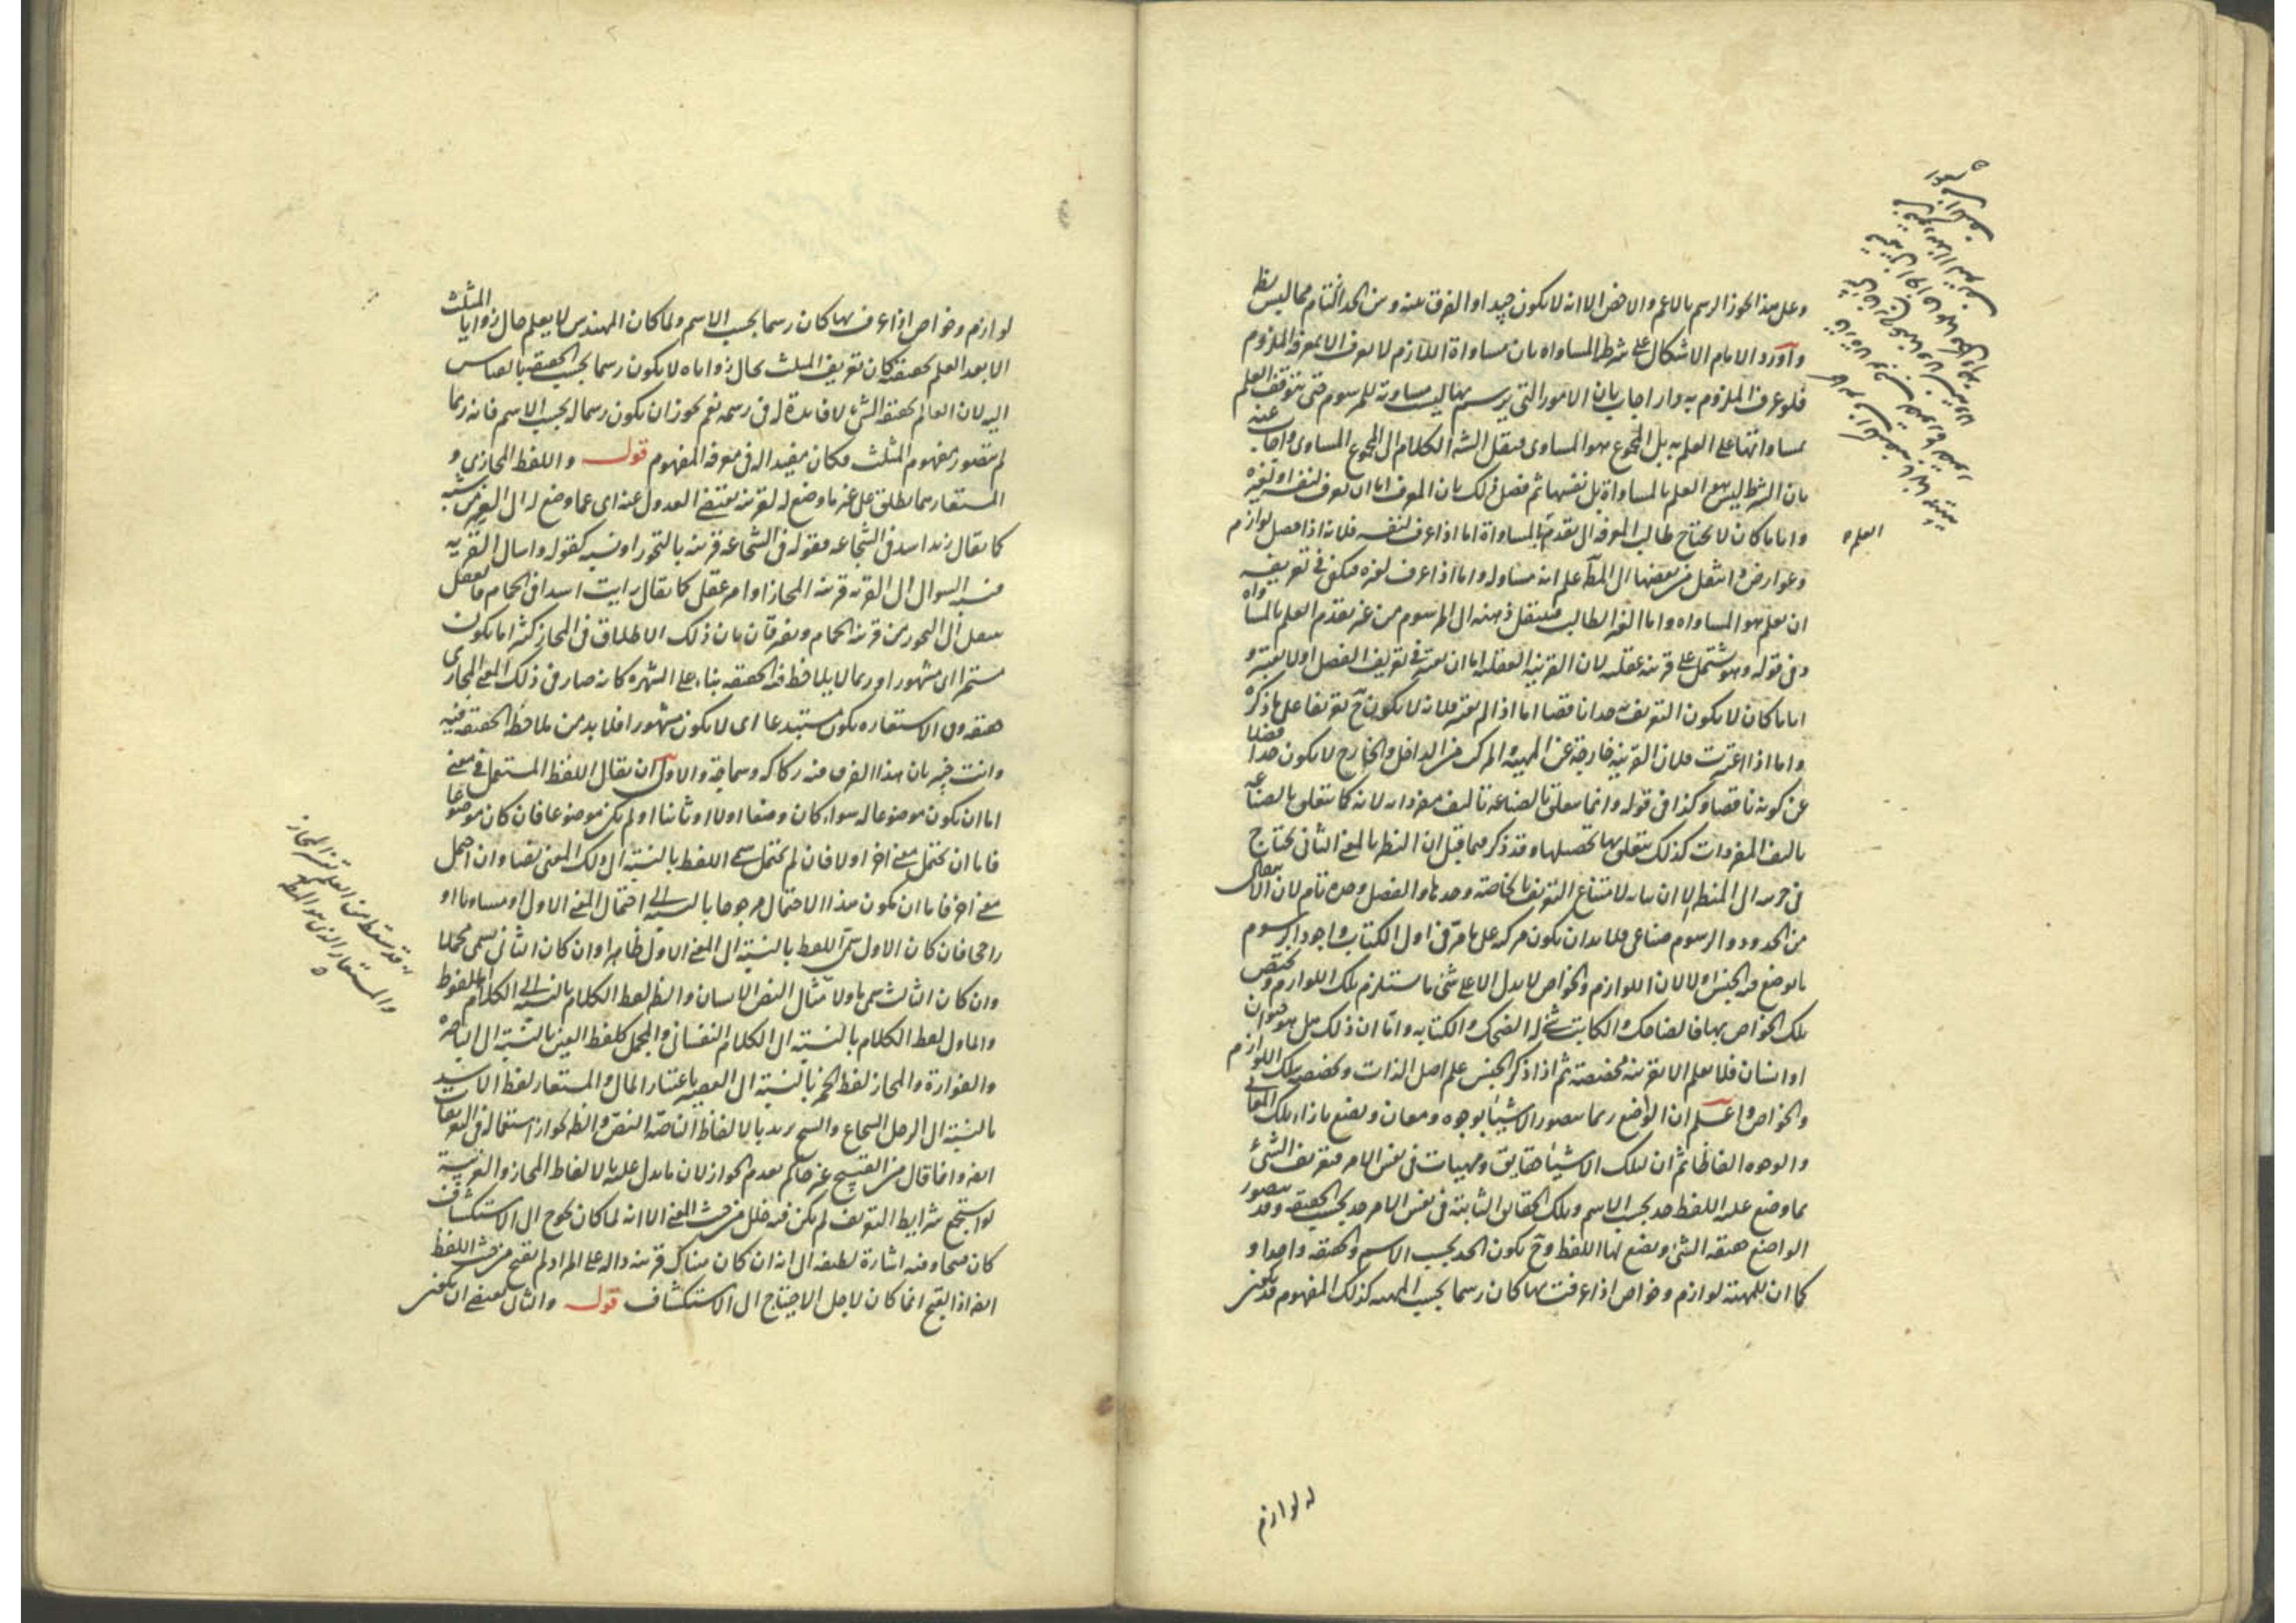 وعلى هذا يجوز الرسم بالاعم والاخص الا انه لا يكون جيدا والفرق بينه وبين الحد التام مما ليس يظ
وآورد الامام الاشكال على شرط المساواه بان مساواة اللازم لا يعرف الا بمعرفة الملزوم
فلو عرف الملزوم به دار اجاب بان الامور التي يرسم بها ليست مساوية للمرسوم حتى يتوقف العلم
بمساواتها على العلم به بل المجموع هو المساوى فنقل الكلام الى المجموع المساوى واجاب عنه
بان الشرط ليس هو العلم بالمساواة بل نفسها ثم فصل ذلك بان المعرف اما ان يعرف لنفسه او لغيره
واياما كان لا يحتاج طالب المعرفه الى تقدم العلم بالمساواة اما اذا عرف لنفسه فلانه اذا حصل لوازم
وعوارض وانتقل من بعضها الى المط علم انه مساو له واما اذا عرف لغيره فيكفى فى تعريفه
ان يعلم هو المساواه واما الغير الطالب فينتقل ذهنه الى المرسوم من غير تقدم العلم بالمساواه
وفى قوله وهو يشتمل على قرينه عقليه لان القرينه العقليه اما ان يعتبر فى تعريف الفصل اولا يعتبر و
اياما كان لا يكون التعريف حدا ناقصا اما اذا لم يعتبر فلانه لا يكون ح تعريفا على ما ذكره
واما اذا اعتبرت فلان القرينه خارجة عن المهية والمركب من الداخل والخارج لا يكون حدا فضلا
عن كونه ناقصا وكذا فى قوله وانما يتعلق بالصناعه تاليف مفرداته لانه كما يتعلق بالصناعه
تاليف المفردات كذلك يتعلق بها تحصيلها وقد ذكر فيما قبل ان النظر بالمعنى الثانى يحتاج
فى جزءيه الى المنطق الا ان بيانه لامتناع التعريف بالخاصة وحدها والفصل وحده تام لان الانتقال
من الحدود والرسوم صناعى فلا بد ان يكون مركبه على ما مر فى اول الكتاب واجود الرسوم
ما يوضع فيه الجنس اولا لان اللوازم والخواص لا يدل الا على شئ ما يستلزم تلك اللوازم ويختص
تلك الخواص بها فالضاحك والكاتب شئ له الضحك والكتابه واما ان ذلك هل هو حيوان
او انسان فلا يعلم الا بقرينه مخصصة ثم اذا ذكر الجنس علم اصل الذات وتخصصه تلك اللوازم
والخواص واعلم ان الواضع ربما يتصور الاشياء بوجوه ومعان ويضع بازاء تلك المعانى
والوجوه الفاظا ثم ان لتلك الاشياء حقايق ومهيات فى نفس الامر فتعريف الشئ
بما وضع عليه اللفظ حد بحسب الاسم وبتلك الحقايق الثابتة فى نفس الامر حد بحسب الحقيقه وقد يتصور
الواضع حقيقه الشئ ويضع لها اللفظ وح يكون الحد بحسب الاسم والحقيقه واحدا و
كما ان للمهية لوازم وخواص اذا عرفت بها كان رسما بحسب المهيه كذلك المفهوم قد يكون
العلم
له لوازم
لوازم وخواص اذا عرف بها كان رسما بحسب الاسم ولما كان المهندس لا يعلم حال زوايا المثلث
الا بعد العلم بحقيقته كان تعريف المثلث بحال زواياه لا يكون رسما بحسب الحقيقه بالقياس
اليه لان العالم بحقيقة الشئ لا فايدة له فى رسمه نعم يجوز ان يكون رسما له بحسب الاسم فانه ربما
لم يتصور مفهوم المثلث فكان مفيدا له فى معرفة المفهوم قوله واللفظ المجازى و
المستعار ما يطلق على غير ما وضع له لقرينه يقتضى العدول عنه اى عما وضع له الى الغير من شبه
كما يقال زيد اسد فى الشجاعه فقوله فى الشجاعه قرينه بالتجوز او نسبه كقوله واسال القريه
فنسبه السوال الى القريه قرينه المجاز او امر عقلى كما يقال رايت اسدا فى الحمام فالعقل
ينتقل الى التجوز من قرينه الحمام ويفرقان بان ذلك الاطلاق فى المجاز كثيرا ما يكون
مستمرا اى مشهورا وربما لا يلاحظ فيه الحقيقه بناء على الشهره كانه صار فى ذلك المعنى المجازى
حقيقه وفى الاستعاره يكون مستبدعا اى لا يكون مشهورا فلا بد من ملاحظة الحقيقة فيه
وانت خبير بان هذا الفرق فيه ركاكه وسماجة والاولى ان يقال اللفظ المستعمل فى معنى
اما ان يكون موضوعا له سواء كان وضعا اولا او ثانيا او لم يكن موضوعا فان كان موضوعا
فاما ان يحتمل معنى اخر اولا فان لم يحتمل سمى اللفظ بالنسبة الى ذلك المعنى نصا وان احتمل
معنى اخر فاما ان يكون هذا الاحتمال مرجوحا بالنسبة الى احتمال المعنى الاول او مساويا او
راجحا فان كان الاول سمى اللفظ بالنسبة الى المعنى الاول ظاهرا وان كان الثانى يسمى مجملا
وان كان الثالث سمى ماولا مثال النص الانسان والظ لفظ الكلام بالنسبة الى الكلام الملفوظ
والماول لفظ الكلام بالنسبة الى الكلام النفسانى والمجمل كلفظ العين بالنسبة الى الباصره
والفوارة والمجاز لفظ الخمر بالنسبة الى العصير باعتبار المال والمستعار لفظ الاسد
بالنسبة الى الرجل الشجاع والشيخ يريد بالالفاظ الناصة النص والظ لجواز استعماله فى التعريفات
ايض وانما قال من القبيح غير حاكم بعدم الجواز لان ما يدل عليه بالالفاظ المجاز والغريبة
لو استجمع شرايط التعريف لم يكن فيه خلل من حيث المعنى الا انه لما كان يحوج الى الاستكشاف
كان قبيحا وفيه اشارة لطيفه الى انه ان كان هناك قرينه داله على المراد لم يقبح من حيث اللفظ
ايض اذ القبح انما كان لاجل الاحتياج الى الاستكشاف قوله والثانى يقتضى ان يكون